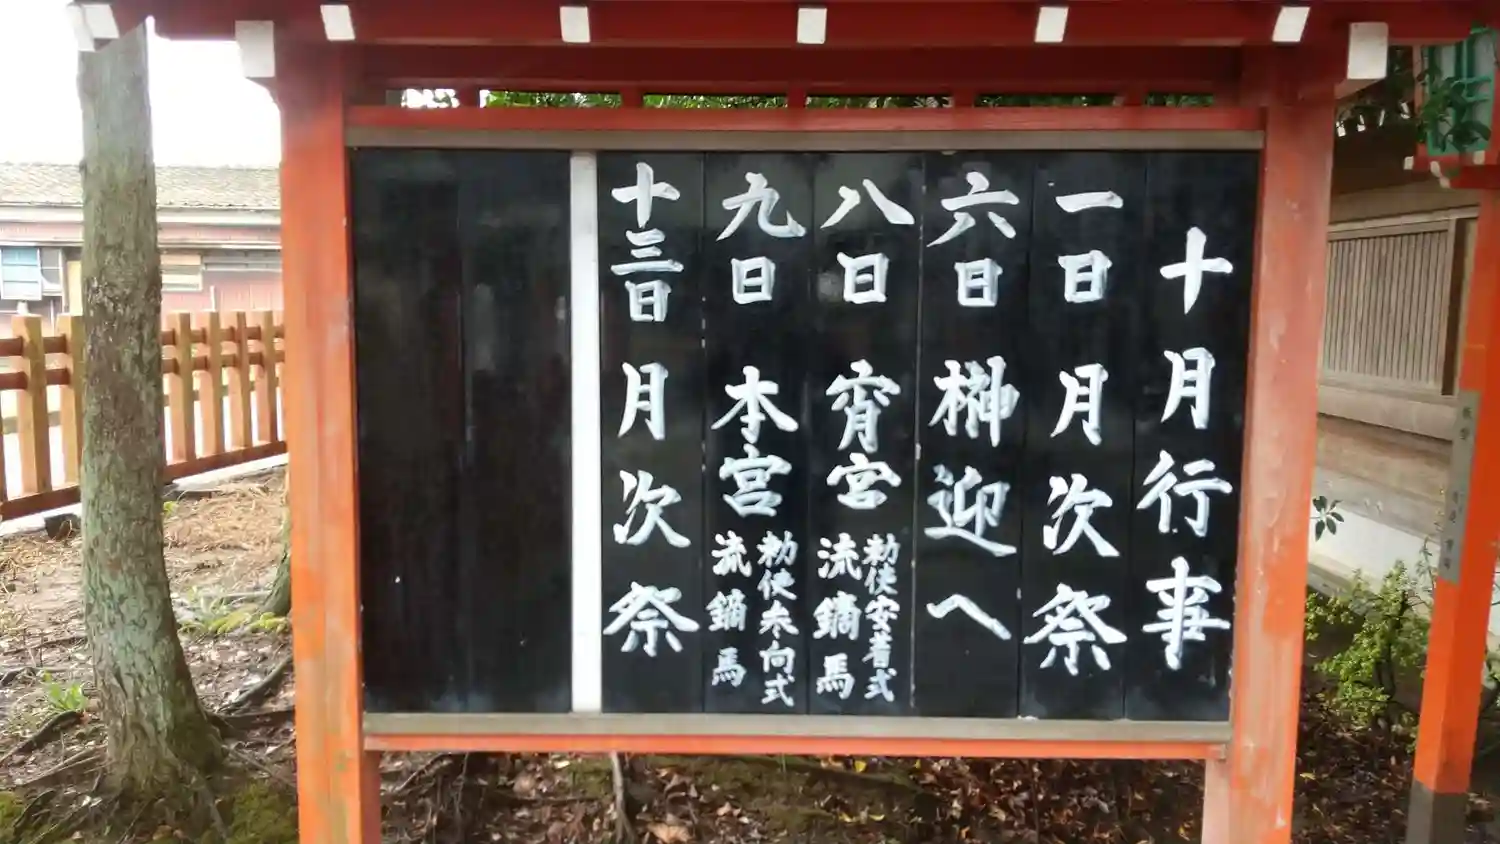 十月行事
一日 月次祭
六日 榊迎へ
八日 宵宮 勅使安着式 流鏑馬
九日 本宮 勅使参向式 流鏑馬
十三日 月次祭